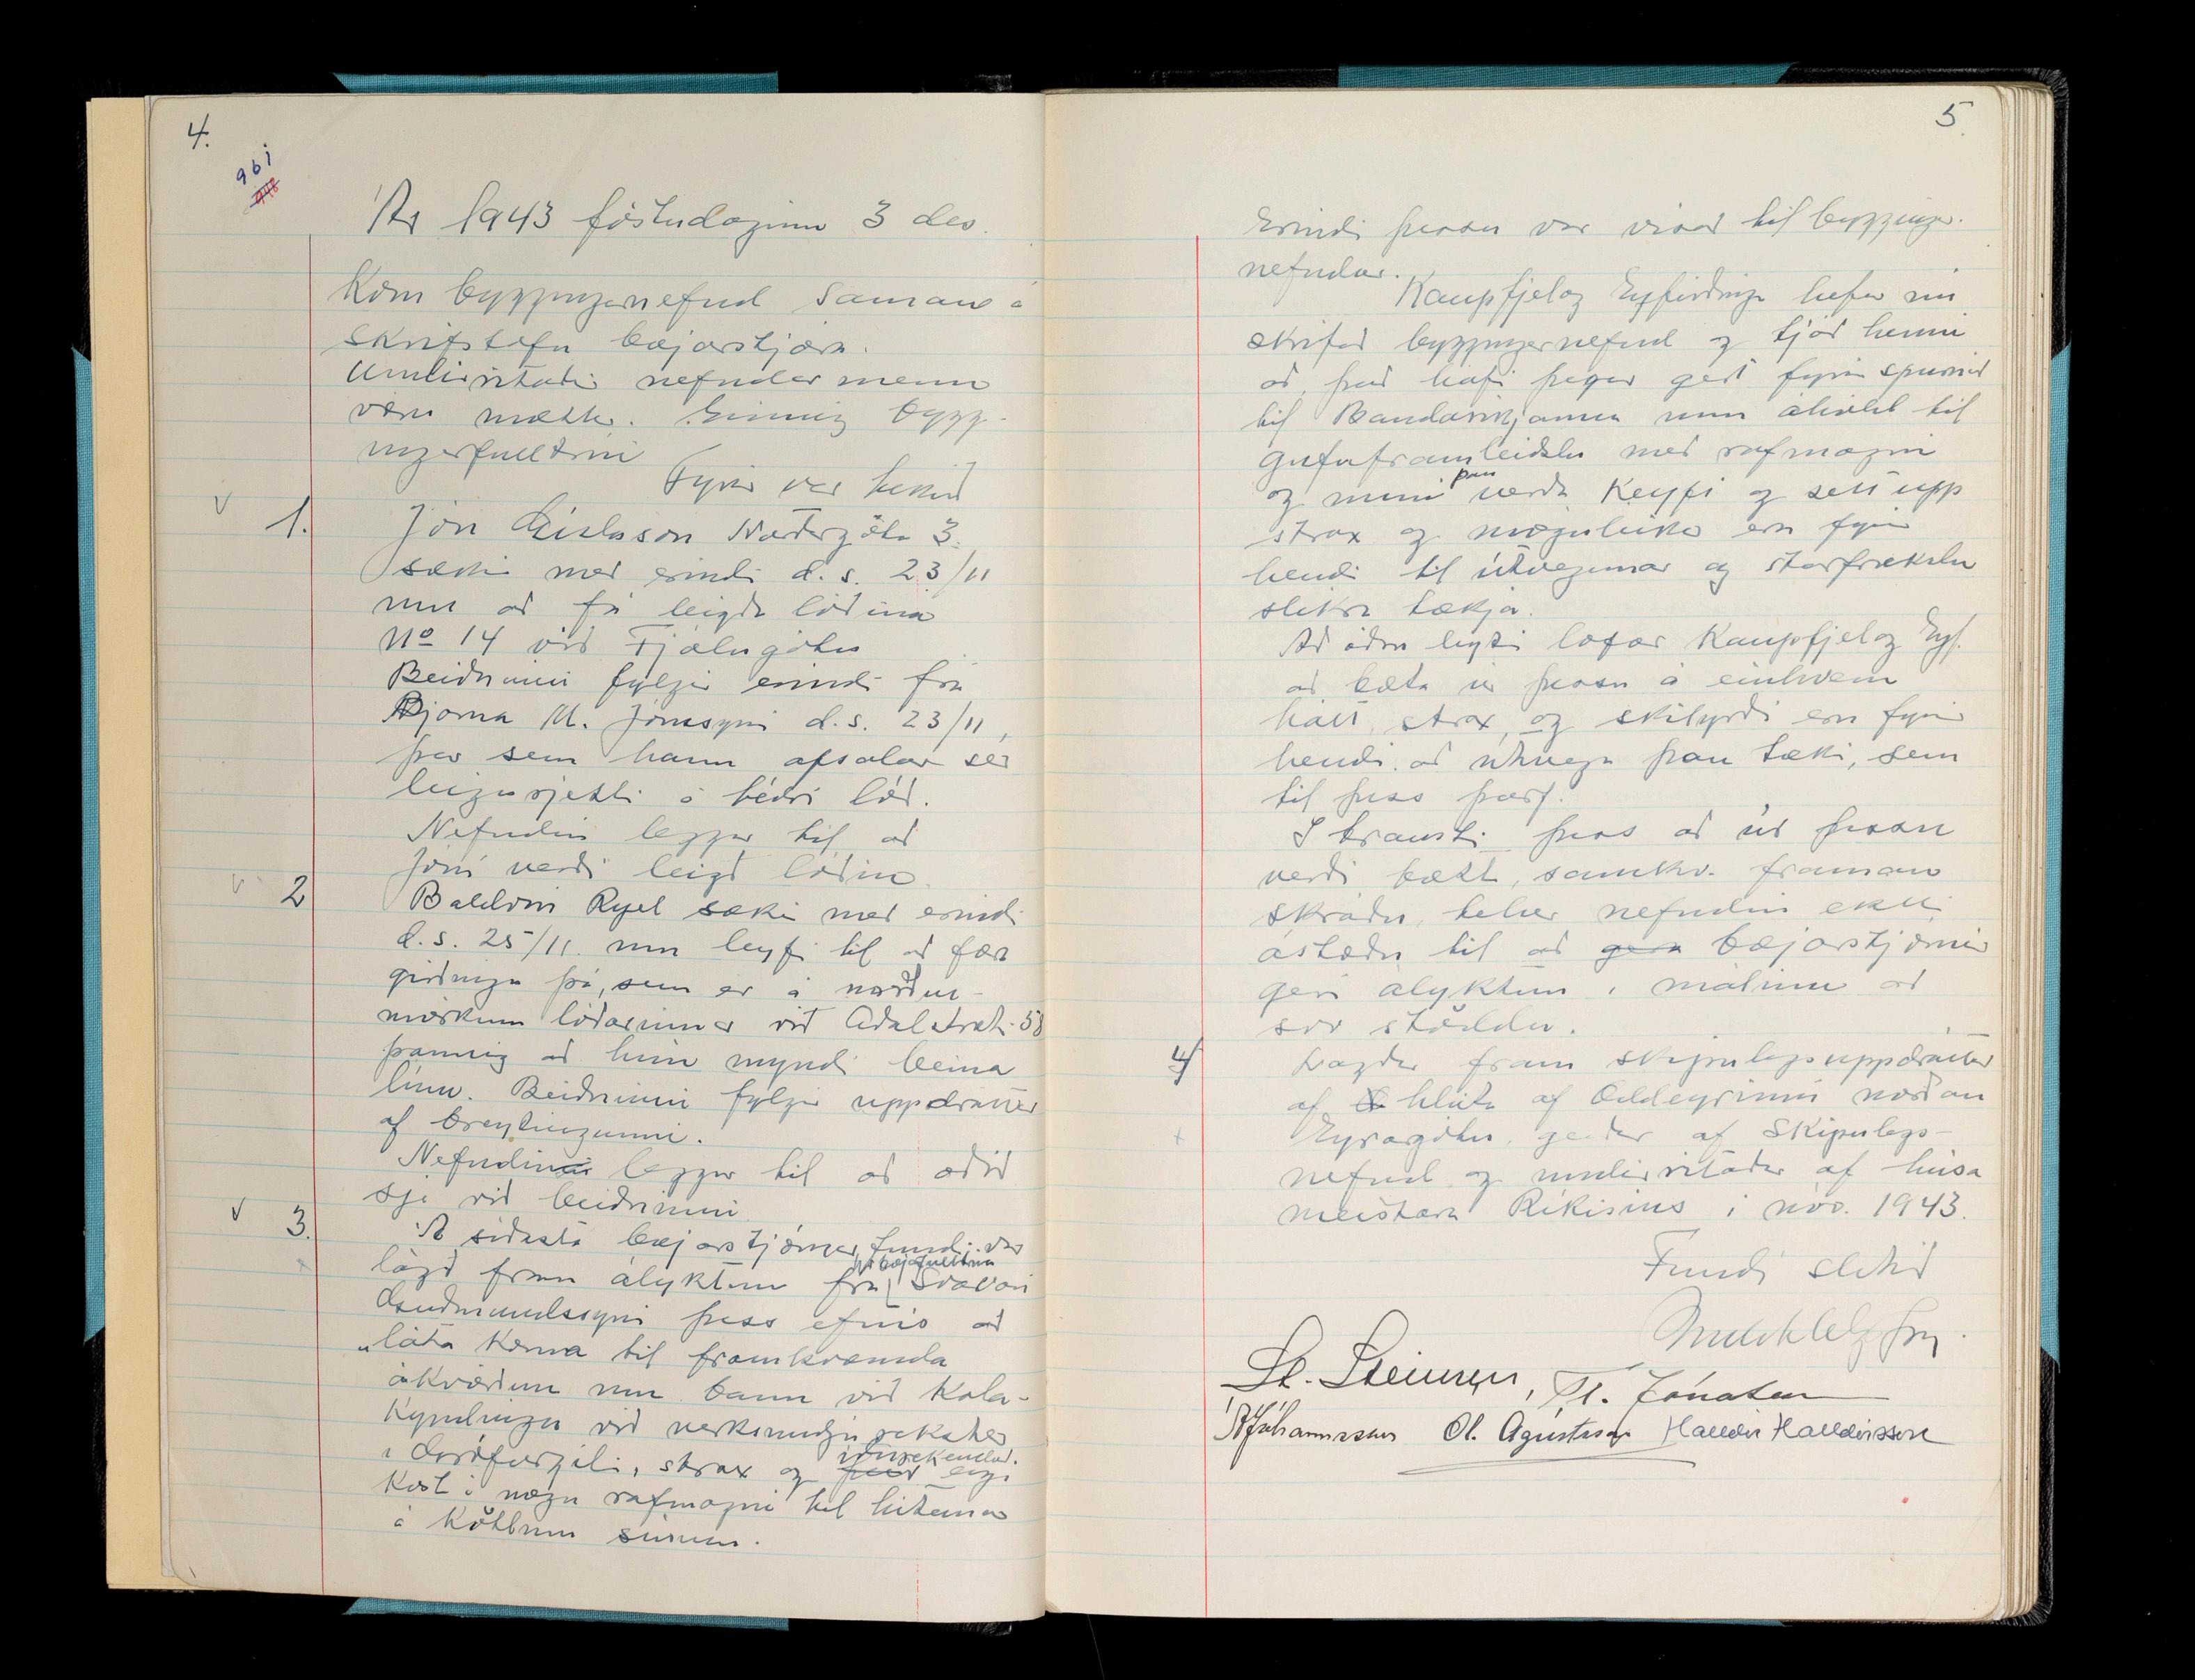 4.
961
Ár 1943 föstudaginn 3 des.
Kom byggingarnefnd saman á
skrifstofu bæjarstjóra.
Undirritaðir nefndarmenn
voru mættir. Einnig bygg-
ingarfulltrúi
Fyrir var tekið
1. Jón Gíslason Norðurgötu 3.
sækir með erindi d.s. 23/11
um að fá leigða lóðina
No 14 við Fjólugötu
Beiðninni fylgir erindi frá
Bjarna M. Jónssyni d.s. 23/11,
þar sem hann afsalar sér
leigurjetti á téðri lóð.
Nefndin leggur til að
Jóni verði leigð lóðin.
2 Baldvin Ryel sækir með erindi
d.s. 25/11. um leyfi til að færa
girðingu þá, sem er á norður-
mörkum lóðarinnar við Aðalstræti 58
þannig að hún myndi beina
línu. Beiðninni fylgir uppdráttur
af breytingunni.
Nefndin leggur til að orðið
sje við beiðninni
3. Á síðasta bæjarstjórnarfundi var
lögð fram ályktun frá hr. bæjarfulltrúa Svavari
Guðmundssyni þess efnis að
„láta koma til framkvæmda
ákvörðun um bann við kola-
kyndingu við verksmiðjurekstur
í Grófargili, strax og iðnrekendur eigi
kost á nægu rafmagni til hitunar
á kötlum sínum.
5.
Erindi þessu var vísað til bygginga-
nefndar.
Kaupfjelag Eyfirðinga hefur nú
skrifað byggingarnefnd og tjáð henni
að það hafi þegar gert fyrirspurnir
til Bandaríkjanna um áhöld til
gufuframleiðslu með rafmagni
og muni þau verða keypt og sett upp
strax og möguleikar eru fyrir
hendi til útvegunar og starfrækslu
slíkra tækja.
Að öðru leyti lofar Kaupfjelag Eyf.
að bæta úr þessu á einhvern
hátt, strax og skilyrði eru fyrir
hendi að útvega þau tæki, sem
til þess þarf.
Í trausti þess að úr þessu
verði bætt, samkv. framan
skráðu, telur nefndin ekki
ástæðu til að gera bæjarstjórnin
geri ályktun í málinu að
svo stöddu.
4) Lagður fram skipulagsuppdráttur
af hluta af Oddeyrinni norðan
Eyrargötu, gerður af Skipulags-
nefnd og undirritaður af húsa
meistara Ríkisins í nóv. 1943.
Fundi slitið
St. Steinsen, Tr. Jónatan
Á Jóhannsson Ól. Ágústsson Halldór Halldórsson